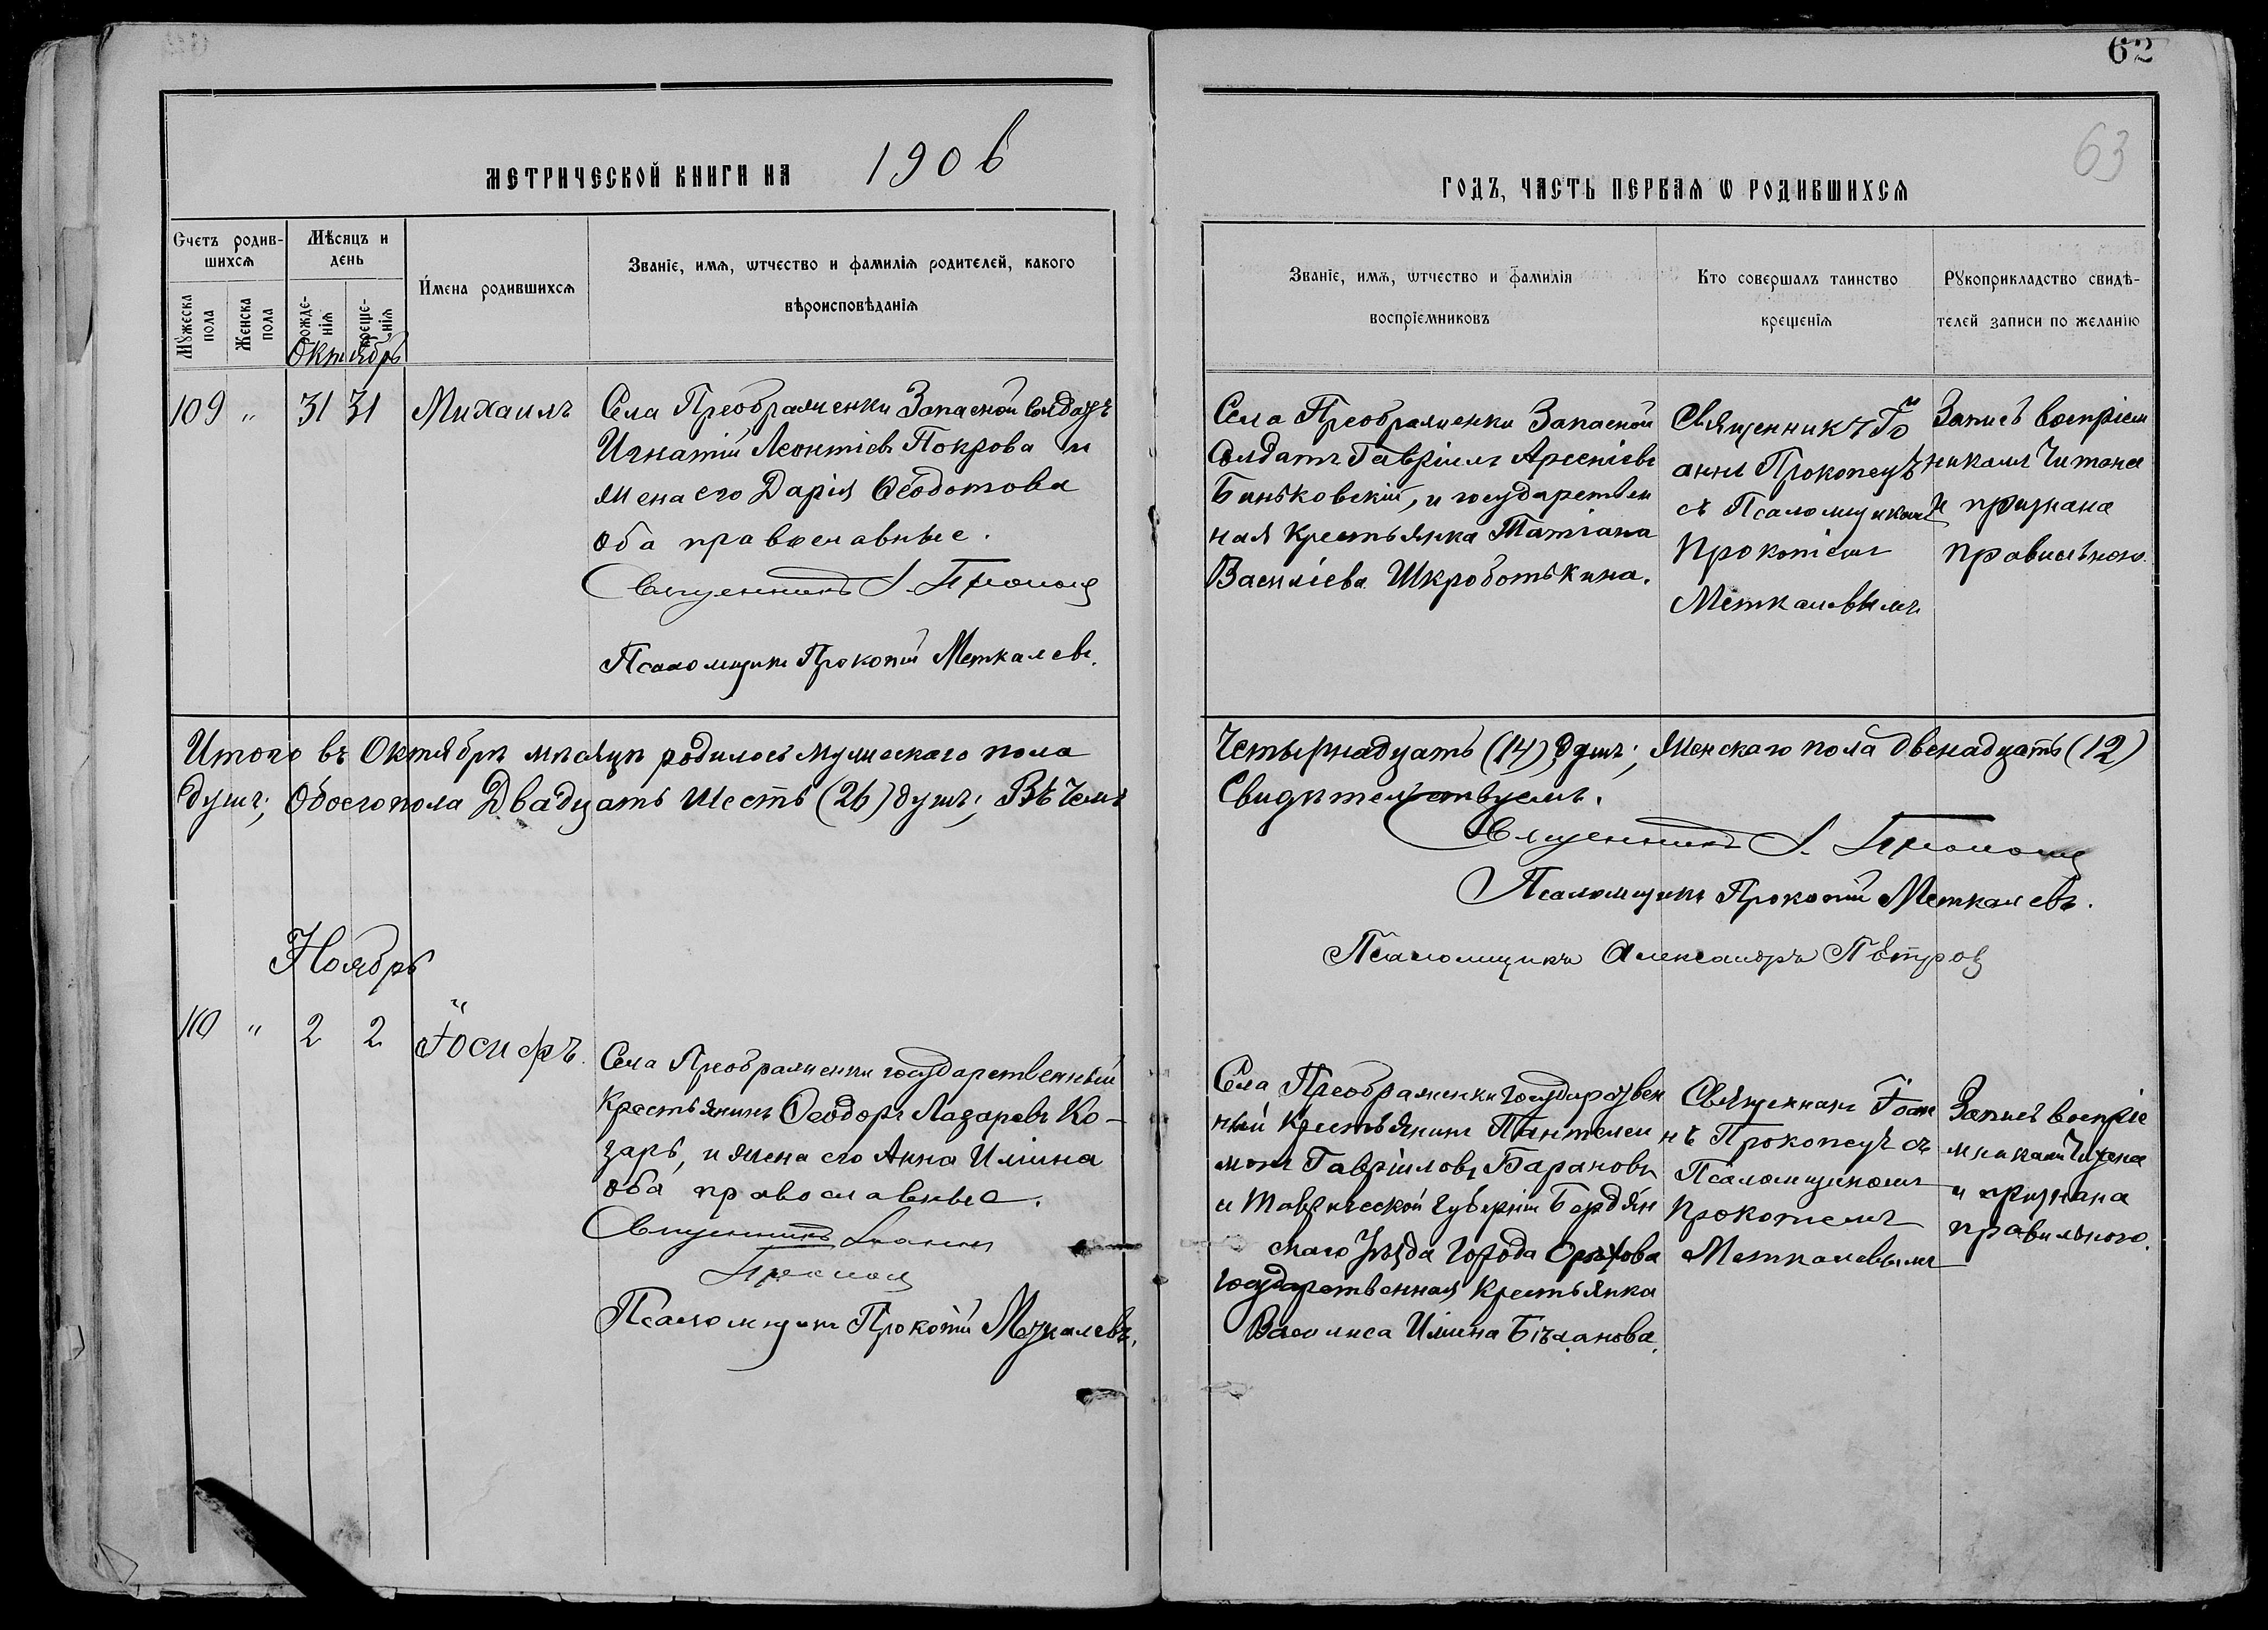 62
63
МЕТРИЧЕСКОЙ КНИГИ НА 1906
ГОДЪ, ЧАСТЬ ПЕРВАѦ Ѡ РОДИВШИХСѦ
Счетъ родив-
шихсѧ
Мужеска
пола
Женска
пола
Мѣсяцъ и
день
рожде-
нія
креще-
нія
Имена родившихсѧ
Званіе, имѧ, ѡтчество и фамиліѧ родителей, какого
вѣроисповѣданіѧ
Званіе, имѧ, ѡтчество и фамиліѧ
воспріемниковъ
Кто совершалъ таинство
крещеніѧ
Рукоприкладство свидѣ-
телей записи по желанію
Октябрь
109 " 31 31 Михаилъ
Села Преображенки Запасной Солдатъ
Игнатій Леонтіевъ Покрова и
жена его Дарія Ѳеодотова
оба православные.
Священникъ І. Прокопецъ
Псаломщикъ Прокопій Меткалевъ.
Села Преображенки Запасной
Солдатъ Гавріилъ Арсеніевъ
Баньковскій, и государствен
ная крестьянка Татіана
Василіева Шкроботькина.
Священникъ Іо
аннъ Прокопецъ
съ Псаломщикомъ
Прокопіемъ
Меткалевымъ
Запись воспріем
никамъ читана
и признана
правильною.
Итого въ Октябрѣ мѣсяцѣ родилось мужескаго пола
Четырнадцать (14) душъ; Женскаго пола двенадцать (12)
душъ; Обоего пола Двадцать Шесть (26) душъ; Въ чемъ
Свидѣтельствуемъ.
Священникъ І. Прокопецъ
Псаломщикъ Прокопій Меткалевъ.
Псаломщикъ Александръ Петров
Ноябрь
110 " 2 2 Іосифъ.
Села Преображенки государственный
крестьянинъ Ѳеодоръ Лазаревъ Ко-
заръ, и жена его Анна Иліина
оба православные.
Священникъ Іоаннъ
Прокопецъ
Псаломщикъ Прокопій Меткалевъ.
Села Преображенки государствен
ный крестьянинъ Пантелеи
монъ Гавріиловъ Барановъ
и Таврической губерніи Бердян
скаго Уѣзда города Орѣхова
государственная крестьянка
Василиса Иліина
Священникъ Іоан
нъ Прокопецъ съ
Псаломщикомъ
Прокопіемъ
Меткалевымъ
Запись воспріе
мникамъ читана
и признана
правильною.